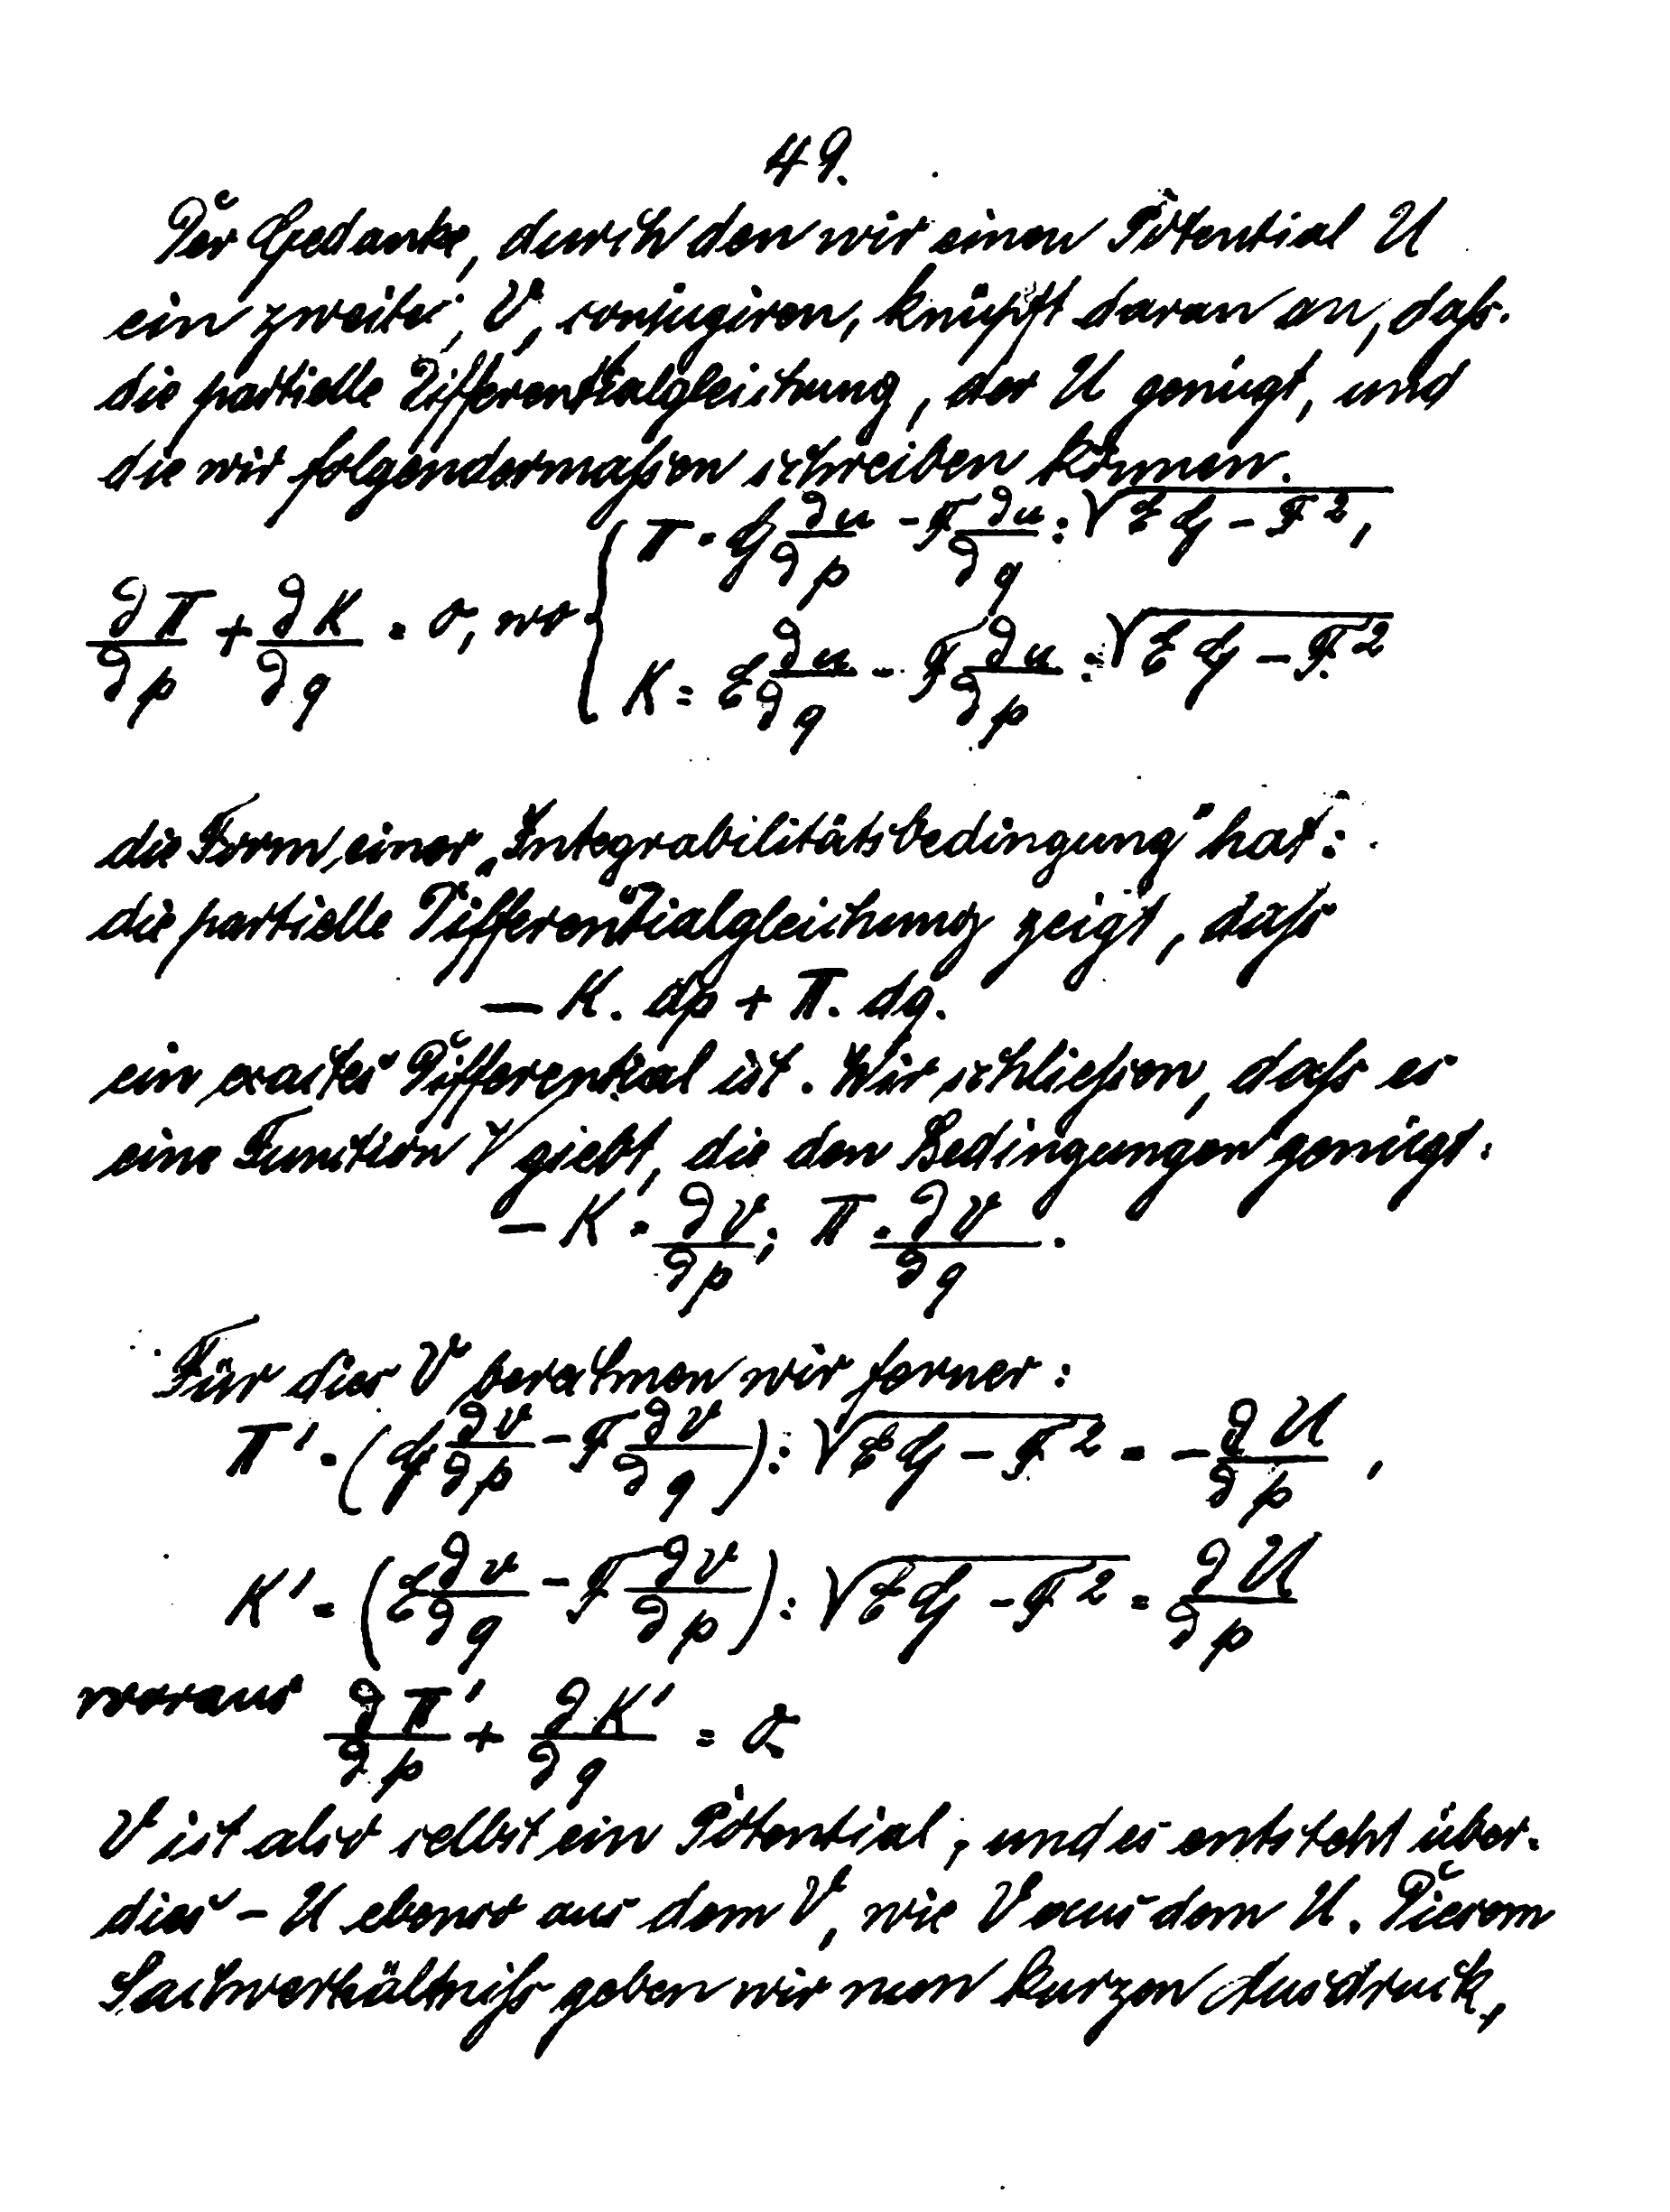 49.
Der Gedanke, durch den wir einen Potential U
ein zweites, V, conjugiren, knüpft daran an, daſs
die partielle Differentialgleichung, der U genügt, und
die wir folgendermaſsen schreiben können.
∂Π/∂p + ∂K/∂q = 0, wo { Π = G ∂u/∂p - F ∂u/∂q : √(EG - F²),
K = E ∂u/∂q - F ∂u/∂p : √(EG - F²)
die Form einer „Integrabilitätsbedingung" hat:
die partielle Differentialgleichung zeigt, daſs
- K. dp + Π. dq.
ein exactes Differential ist. Wir schlieſsen, daſs es
eine Function V giebt, die den Bedingungen genügt:
- K = ∂V/∂p; Π = ∂V/∂q.
Für dies V berechnen wir ferner:
Π' = (G ∂v/∂p - F ∂v/∂q) : √(EG - F²) = - ∂U/∂p,
K' = (E ∂v/∂q - F ∂v/∂p) : √(EG - F²) = ∂U/∂p
woraus ∂Π'/∂p + ∂K'/∂q = 0.
V ist also selbst ein Potential, und es entsteht über-
dies - U ebenso aus dem V, wie V aus dem U. Diesem
Sachverhältniſs geben wir nun kurzen Ausdruck,